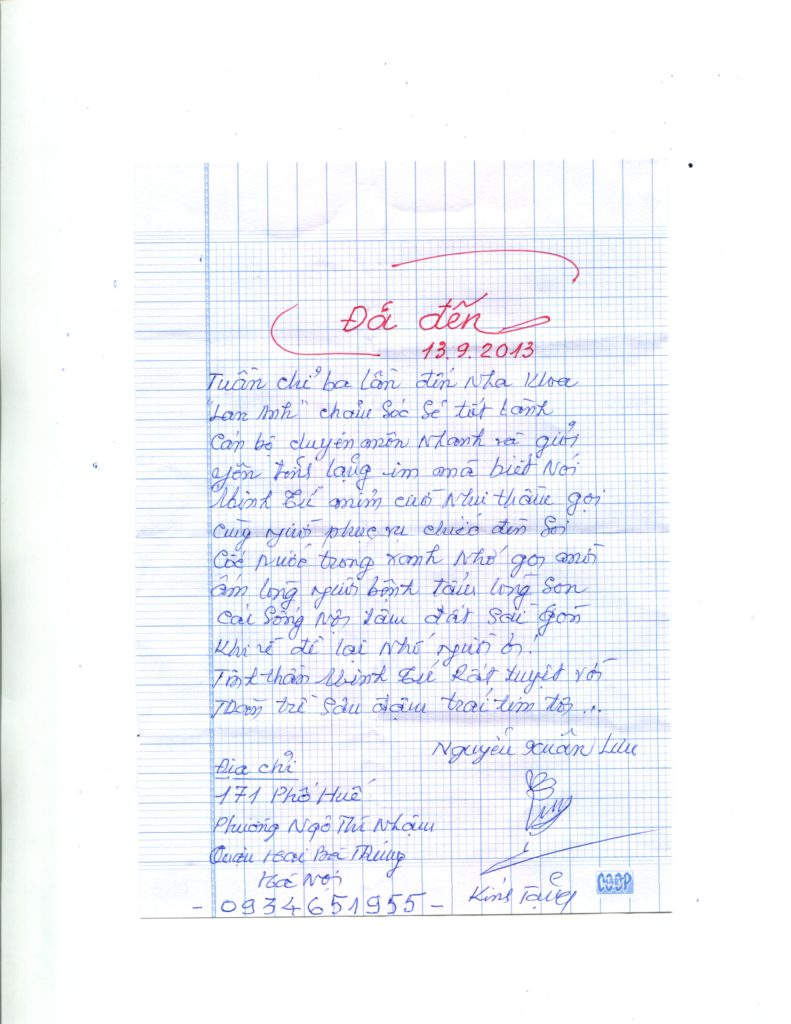 Đã đến
13.9.2013
Tuần chỉ ba lần đến Nha Khoa
"Lan Anh" chăm Sóc Sẽ tốt Lành
Cán bộ chuyên môn Nhanh và giỏi
yên lặng im mà biết Nói
Minh Tú mỉm cười Như thầm gọi
Cùng người phục vụ chiếc đèn Soi
Cốc Nước trong xanh Nhớ gọi mời
ấm lòng người bệnh tấm lòng Son
Cái Sống Nội tâm đất Sài gòn
Khi về để lại Nhớ người ơi!
Tinh thần Minh Tú Rất tuyệt vời
trẻ Sâu đậm trái tim tôi...
Nguyễn Xuân Lưu
Địa chỉ
171 Phố Huế
Phường Ngô Thì Nhậm
Quận Hai Bà Trưng
Hà Nội
- 0934651955 -
Kính Tặng
CO.OP